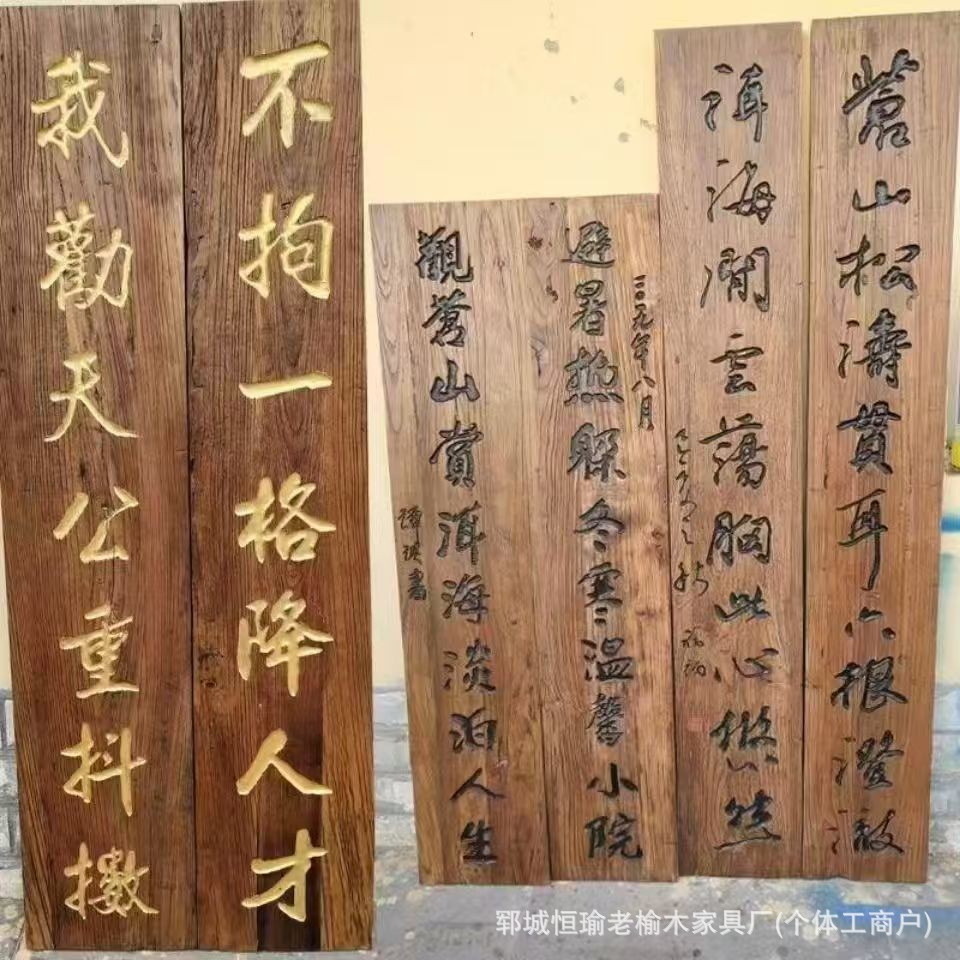 我勸天公重抖擻
不拘一格降人才
二〇〇九年八月
避暑熱躲冬寒温馨小院
觀蒼山賞洱海淡泊人生
蒼山松濤貫耳六根澄澈
洱海閒雲蕩胸此心悠然
郓城恒瑜老榆木家具厂(个体工商户)